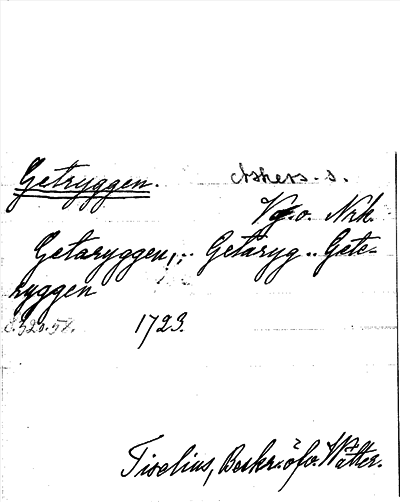 Getryggen. Askers s.
Vg.o. Nrk.
Getaryggen, .. Getaryg .. Gete-
ryggen
1723.
Tiselius, Beskr. öfv. Wätter.